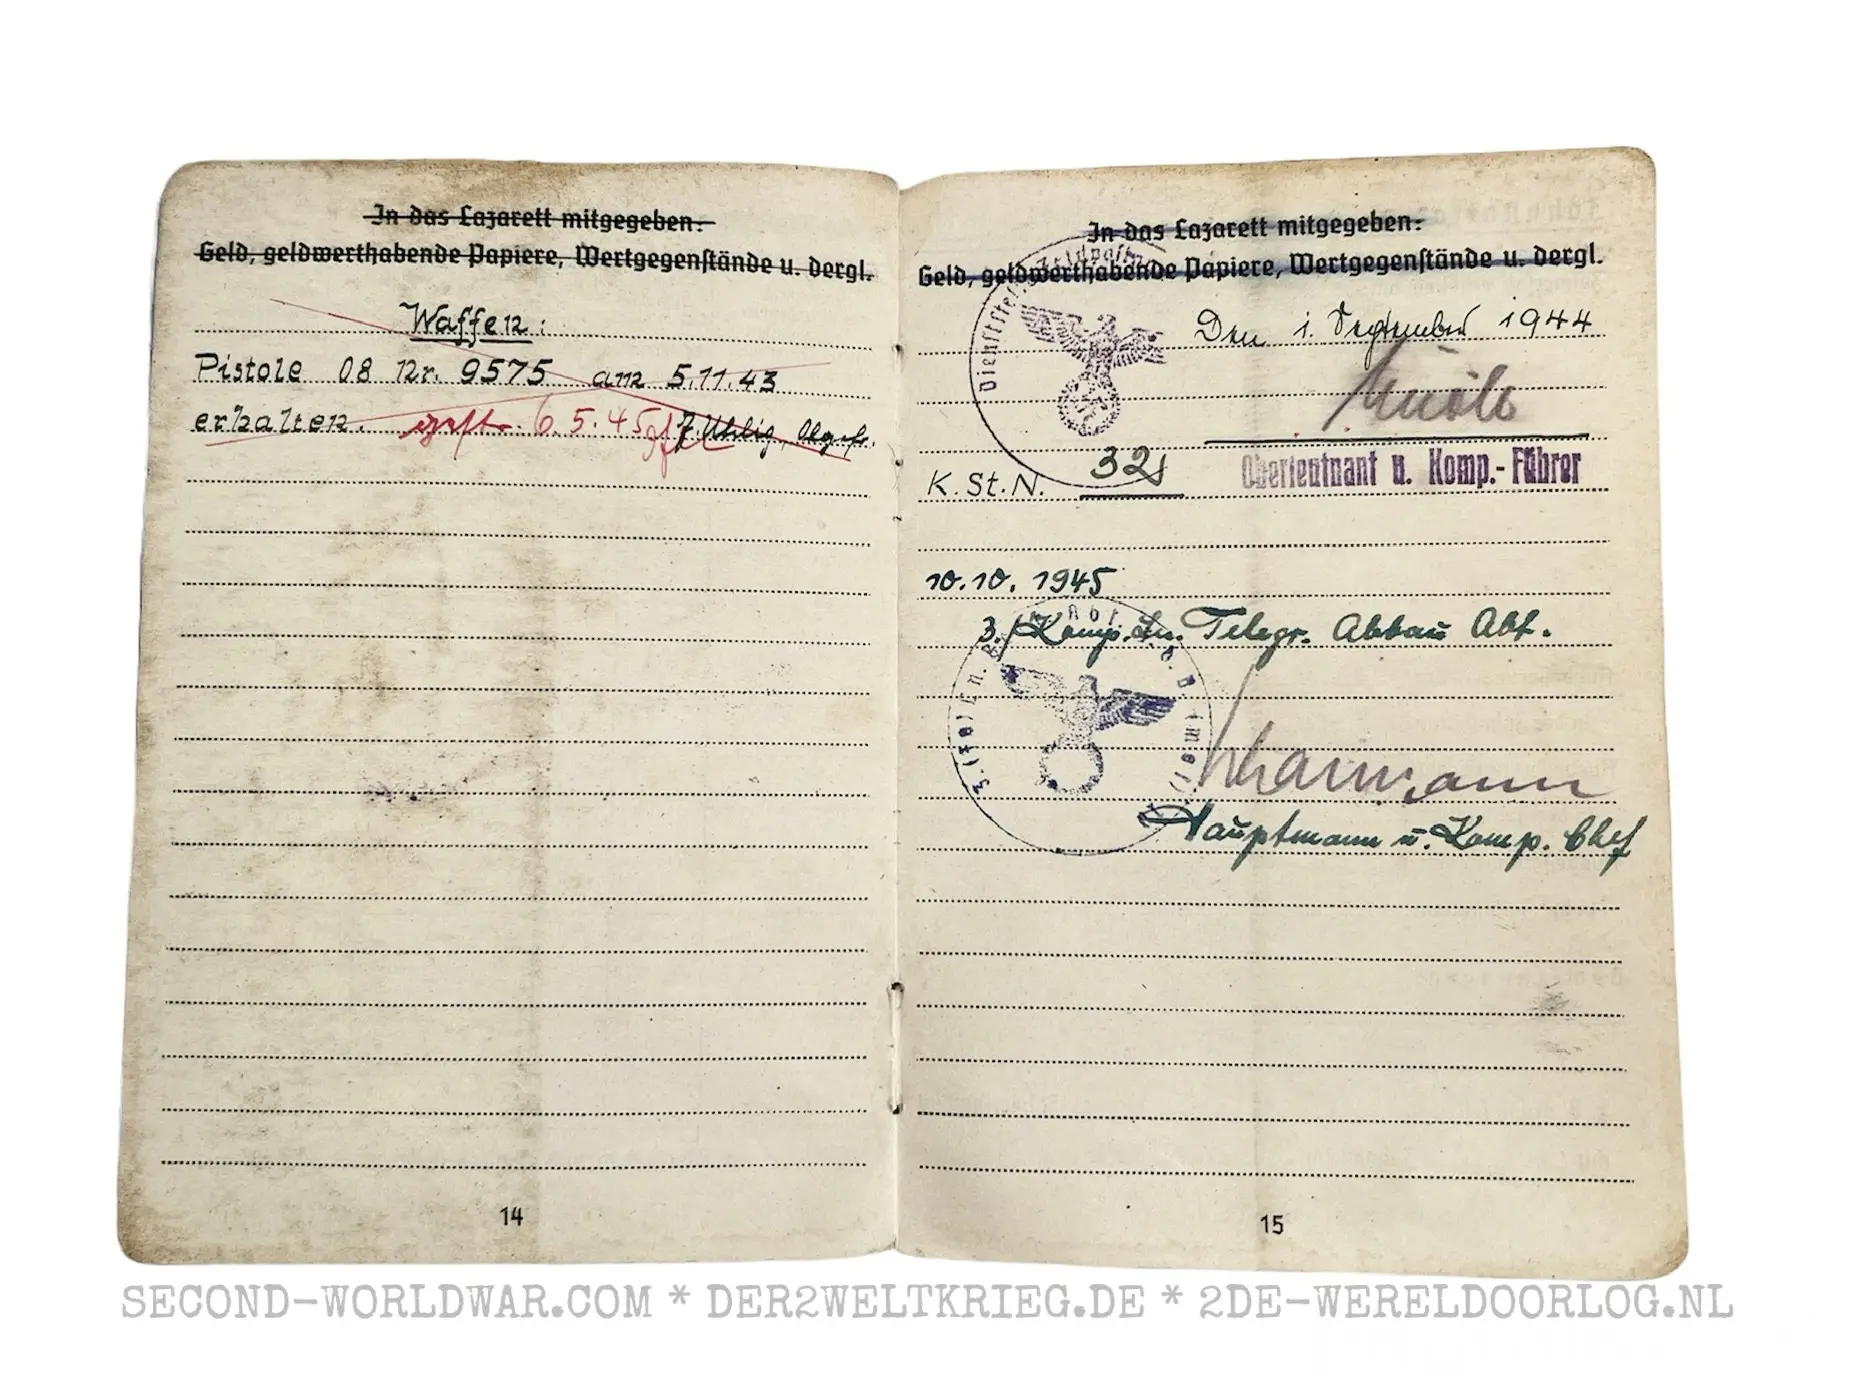 In das Lazarett mitgegeben:
Geld, geldwerthabende Papiere, Wertgegenstände u. dergl.
Waffen:
Pistole 08 Nr. 9575 am 5.11.43
erhalten. 6.5.45 Uhlig, Obgefr.
14
In das Lazarett mitgegeben:
Geld, geldwerthabende Papiere, Wertgegenstände u. dergl.
Dienststelle Feldpostnr.
Den 1. September 1944
K. St. N. 32
Oberleutnant u. Komp.-Führer
10.10.1945
3./Komp. Ln. Telegr. Abbau Abt.
Hauptmann u. Komp. Chef
15
SECOND-WORLDWAR.COM * DER2WELTKRIEG.DE * 2DE-WERELDOORLOG.NL